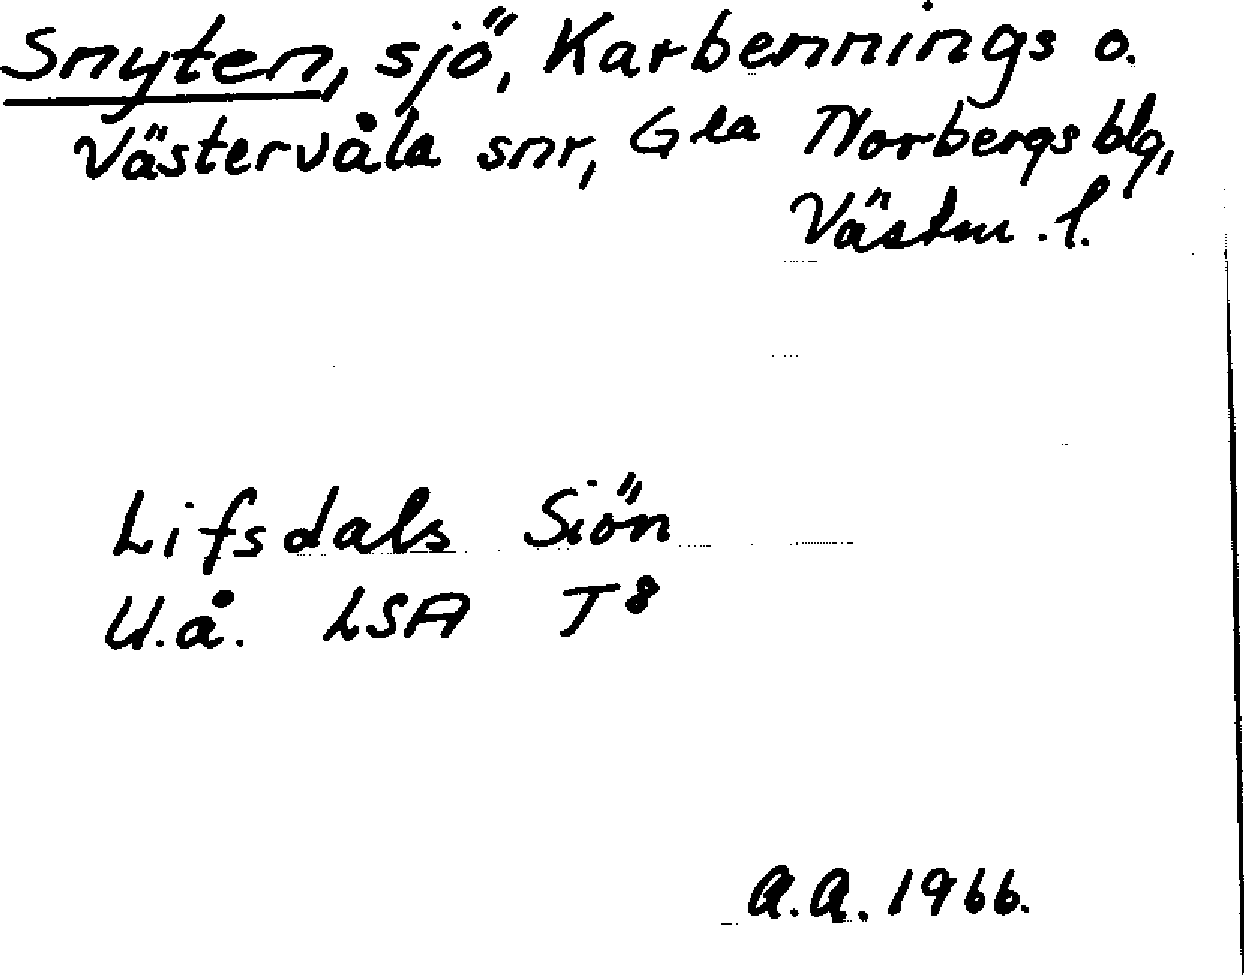 Snyten, sjö, Karbennings o.
Västervåla snr, Gla Norbergs blg,
Västm. l.
Lifsdals Siön
U.å. LSA T8
A.A. 1966.